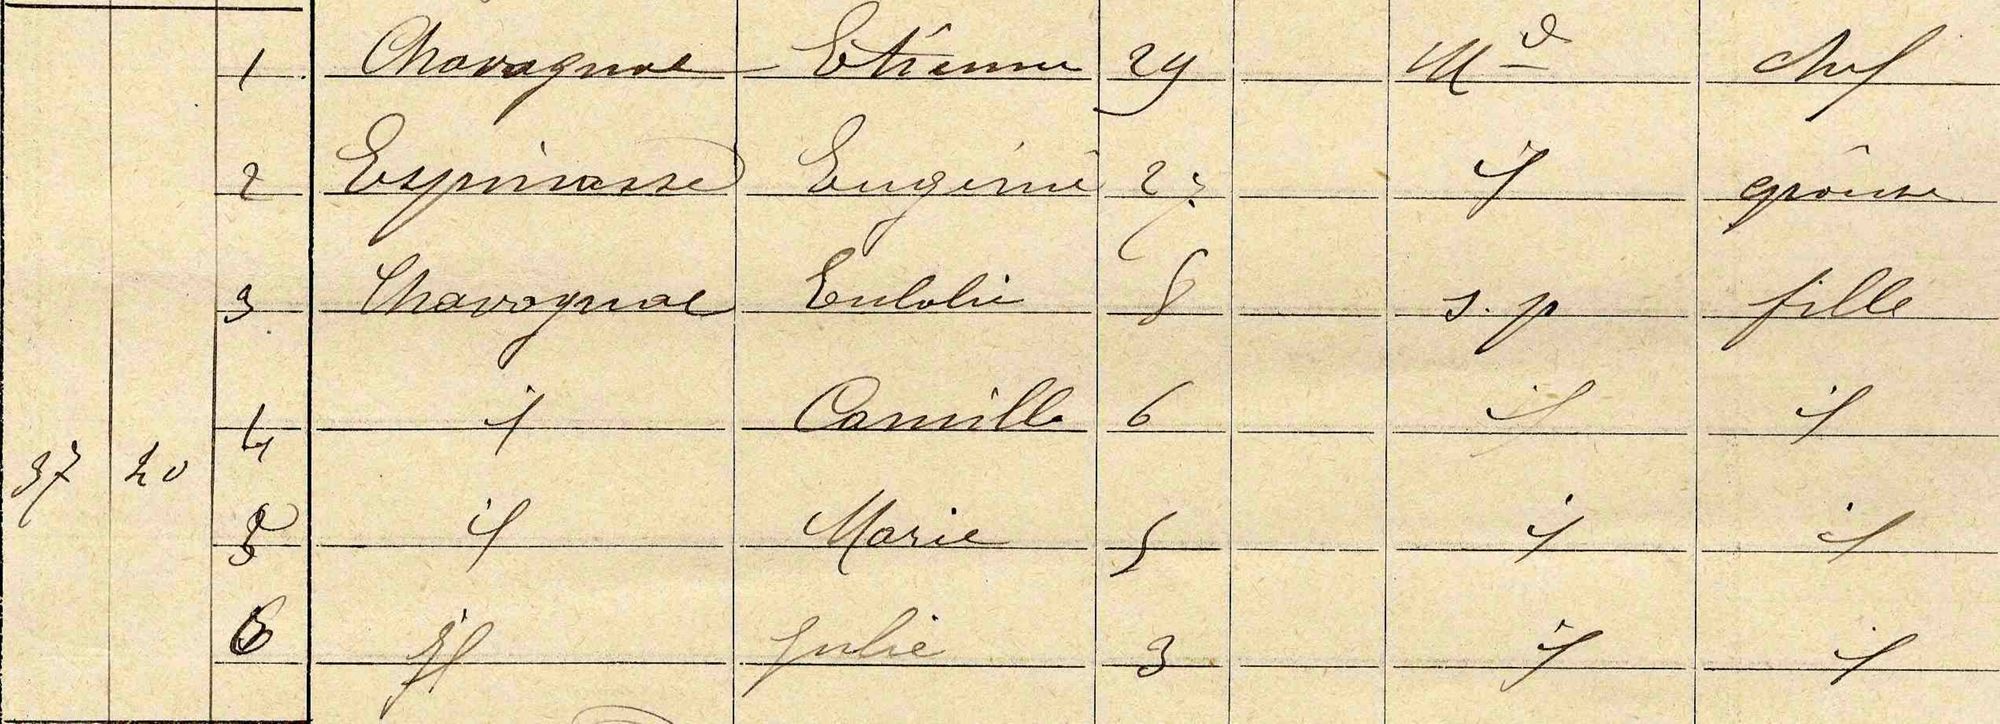 1 Chavagnac Etienne 29 Md chef
2 Espinasse Eugénie 27 id épouse
3 Chavagnac Eulalie 8 s. p fille
4 id Camille 6 id id
37 20
5 id Marie 5 id id
6 id Julie 3 id id